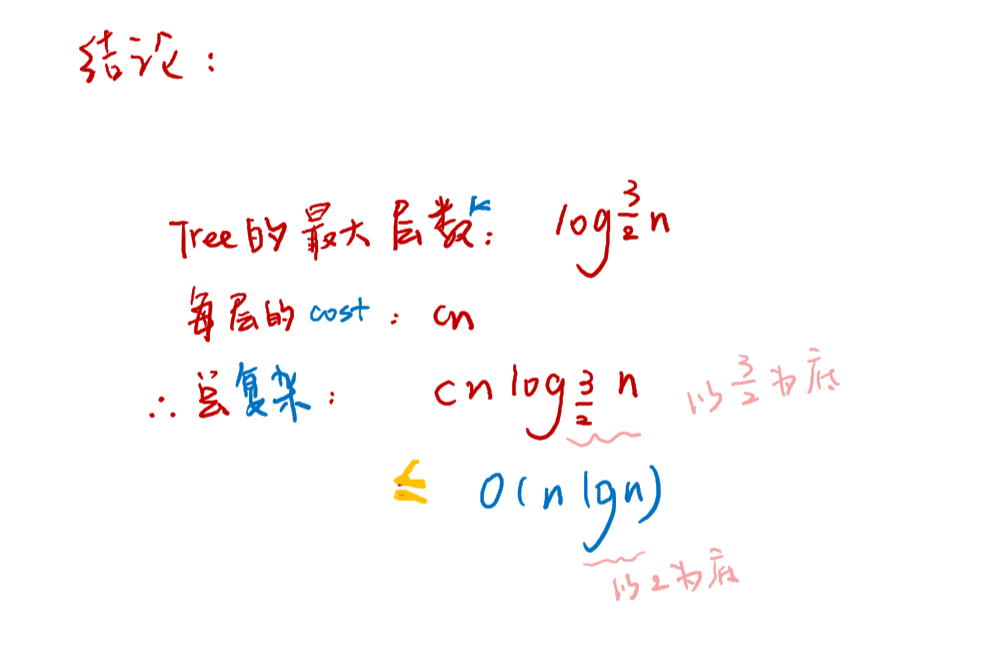 结论：
Tree的最大层数k： log 3/2 n
每层的cost：cn
∴ 总复杂： cn log 3/2 n 以 3/2 为底
≤ O(n lgn)
以2为底